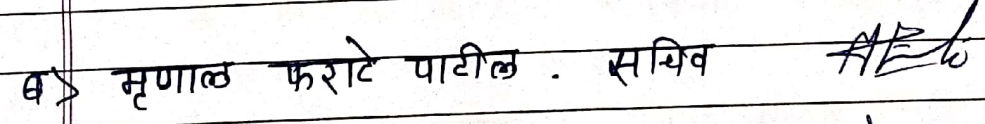 ७> मृणाल फराटे पाटील . सचिव